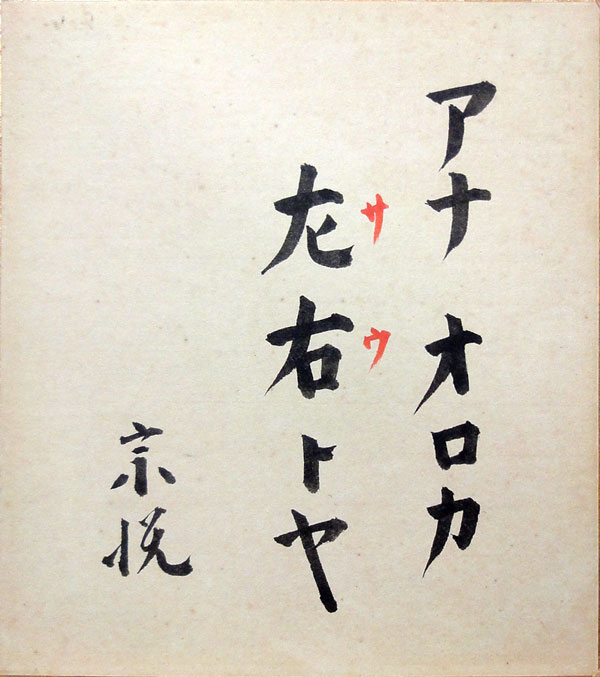 アナ オロカ
サウ
左右トヤ
宗悦